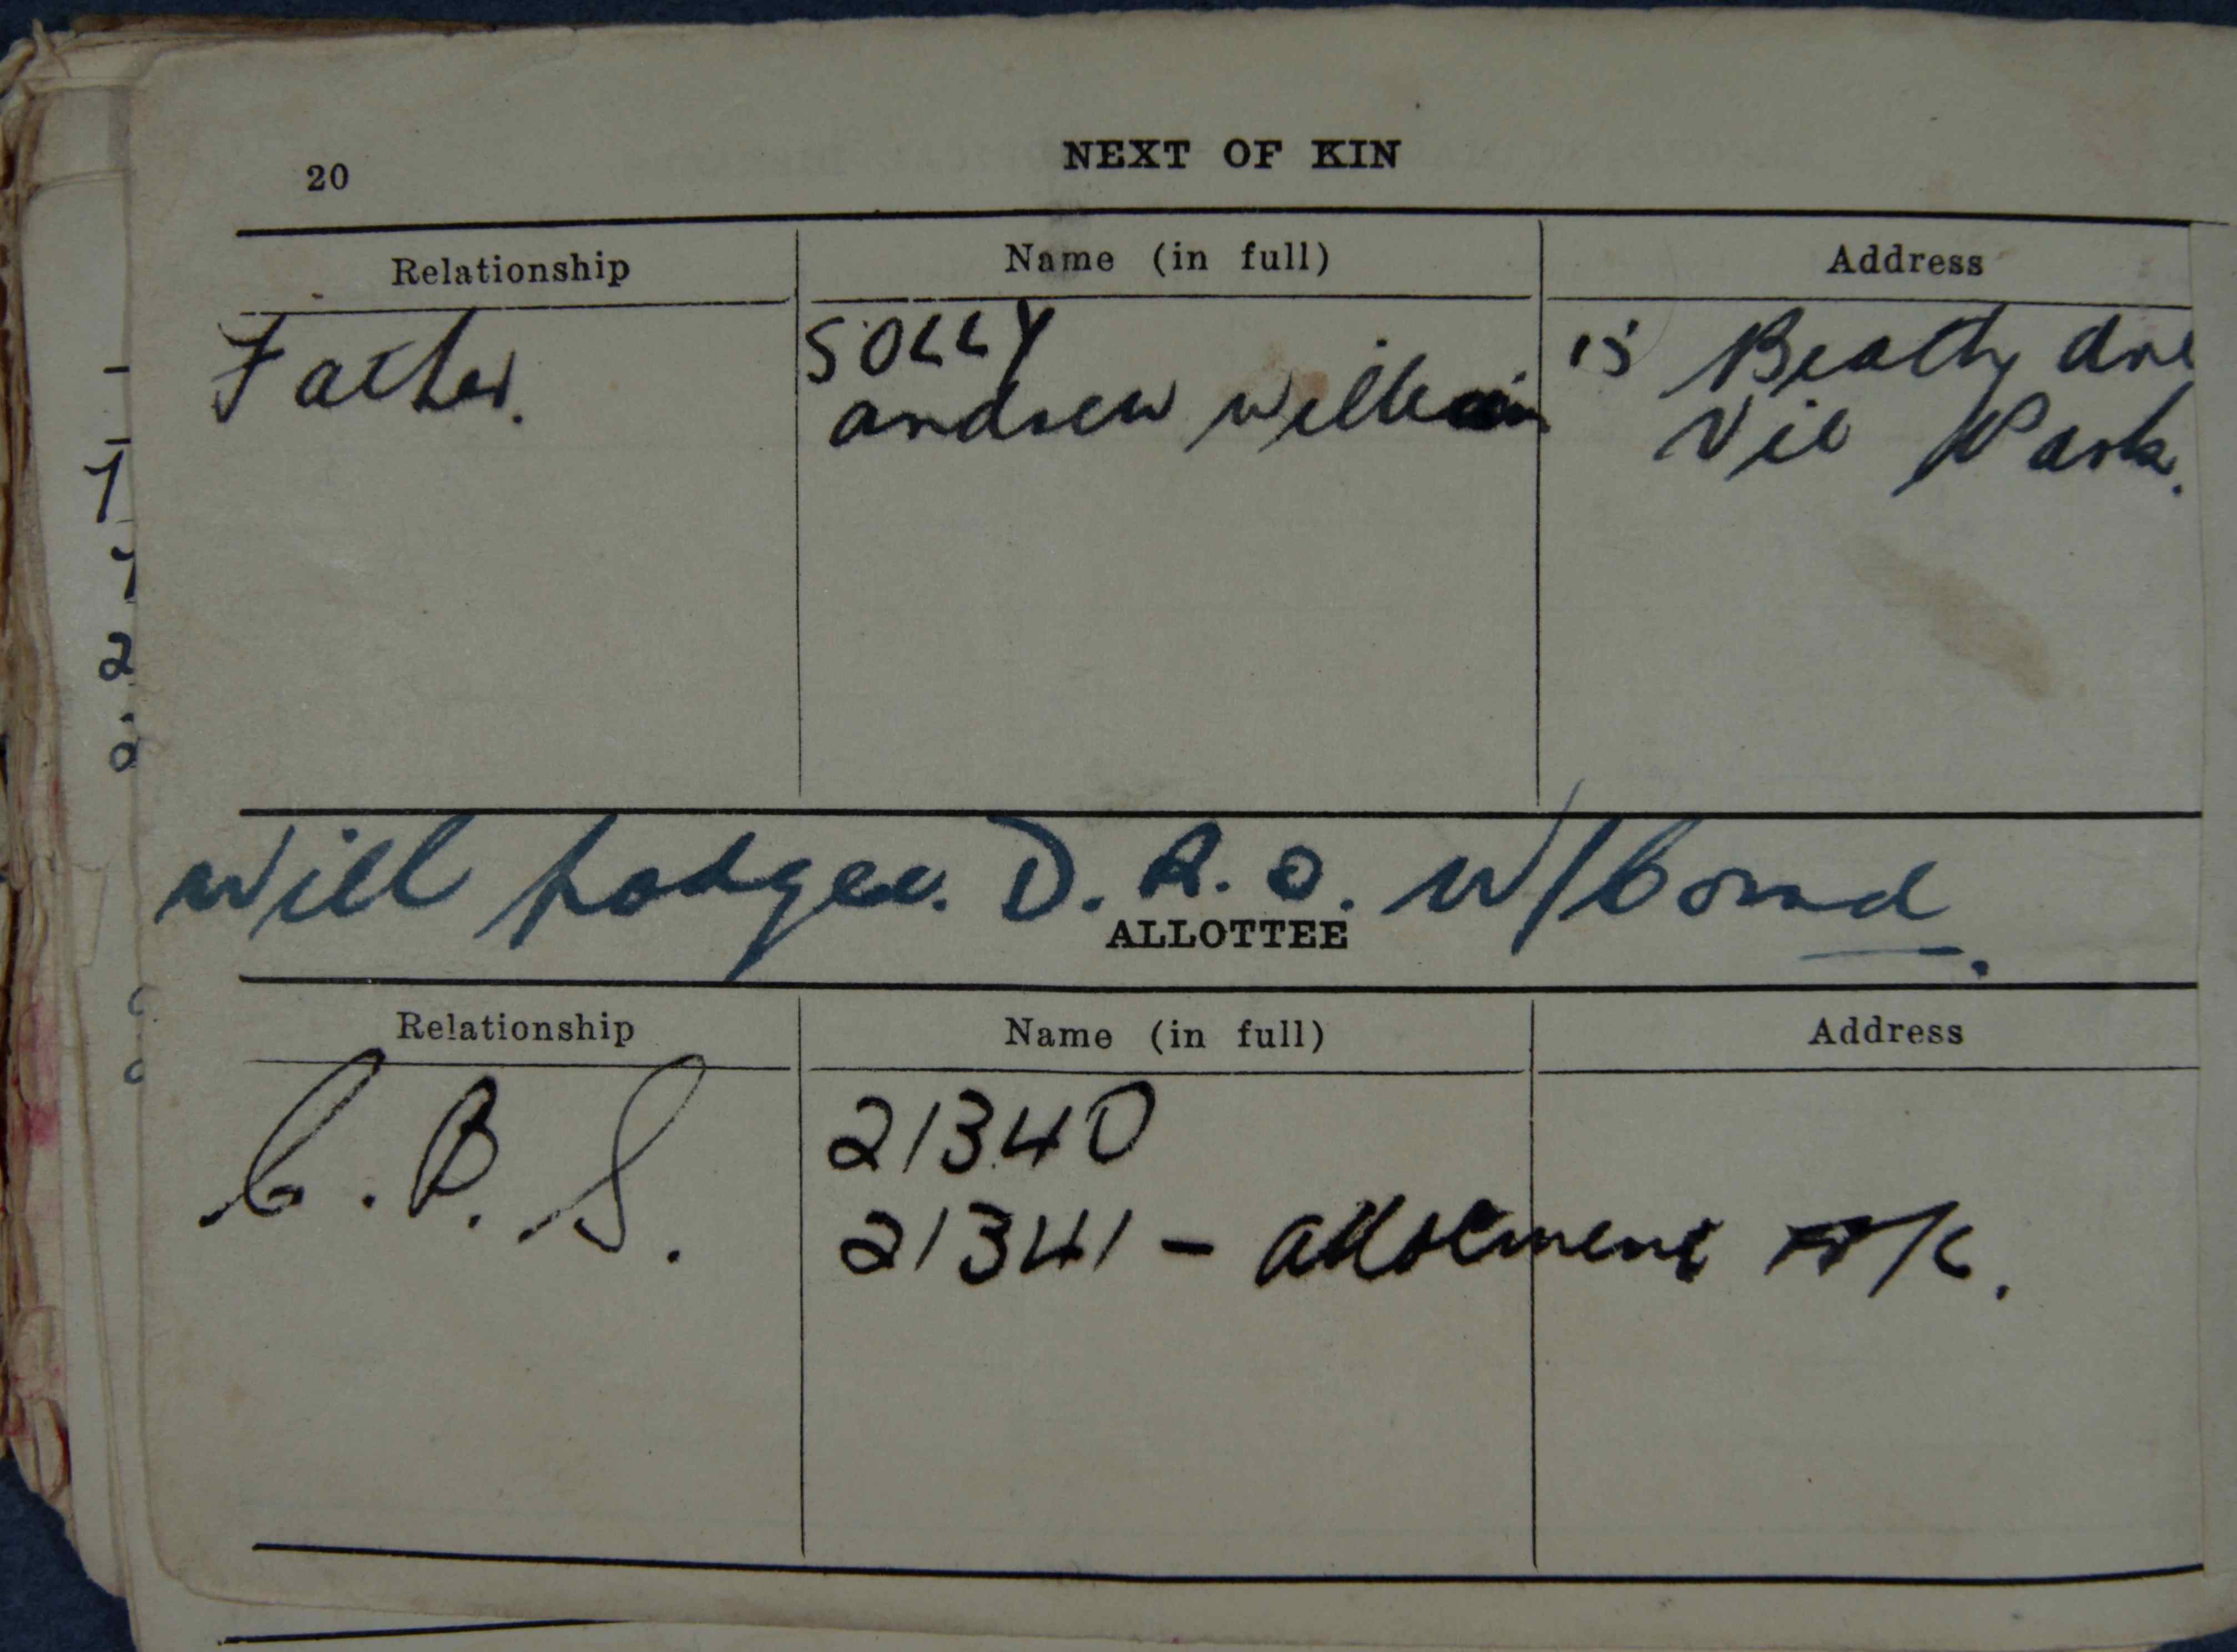 20
NEXT OF KIN
Relationship Name (in full) Address
Father. SOLLY 15 Beatty Ave
andrew william Vic Park.
Will Lodged. D.R.O. W/Comd.
ALLOTTEE
Relationship Name (in full) Address
C.B.S. 21340
21341 - allotment a/c.